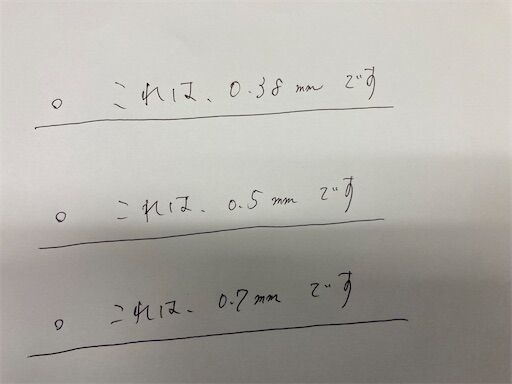 ○ これは、0.38mmです
○ これは、0.5mmです
○ これは、0.7mmです